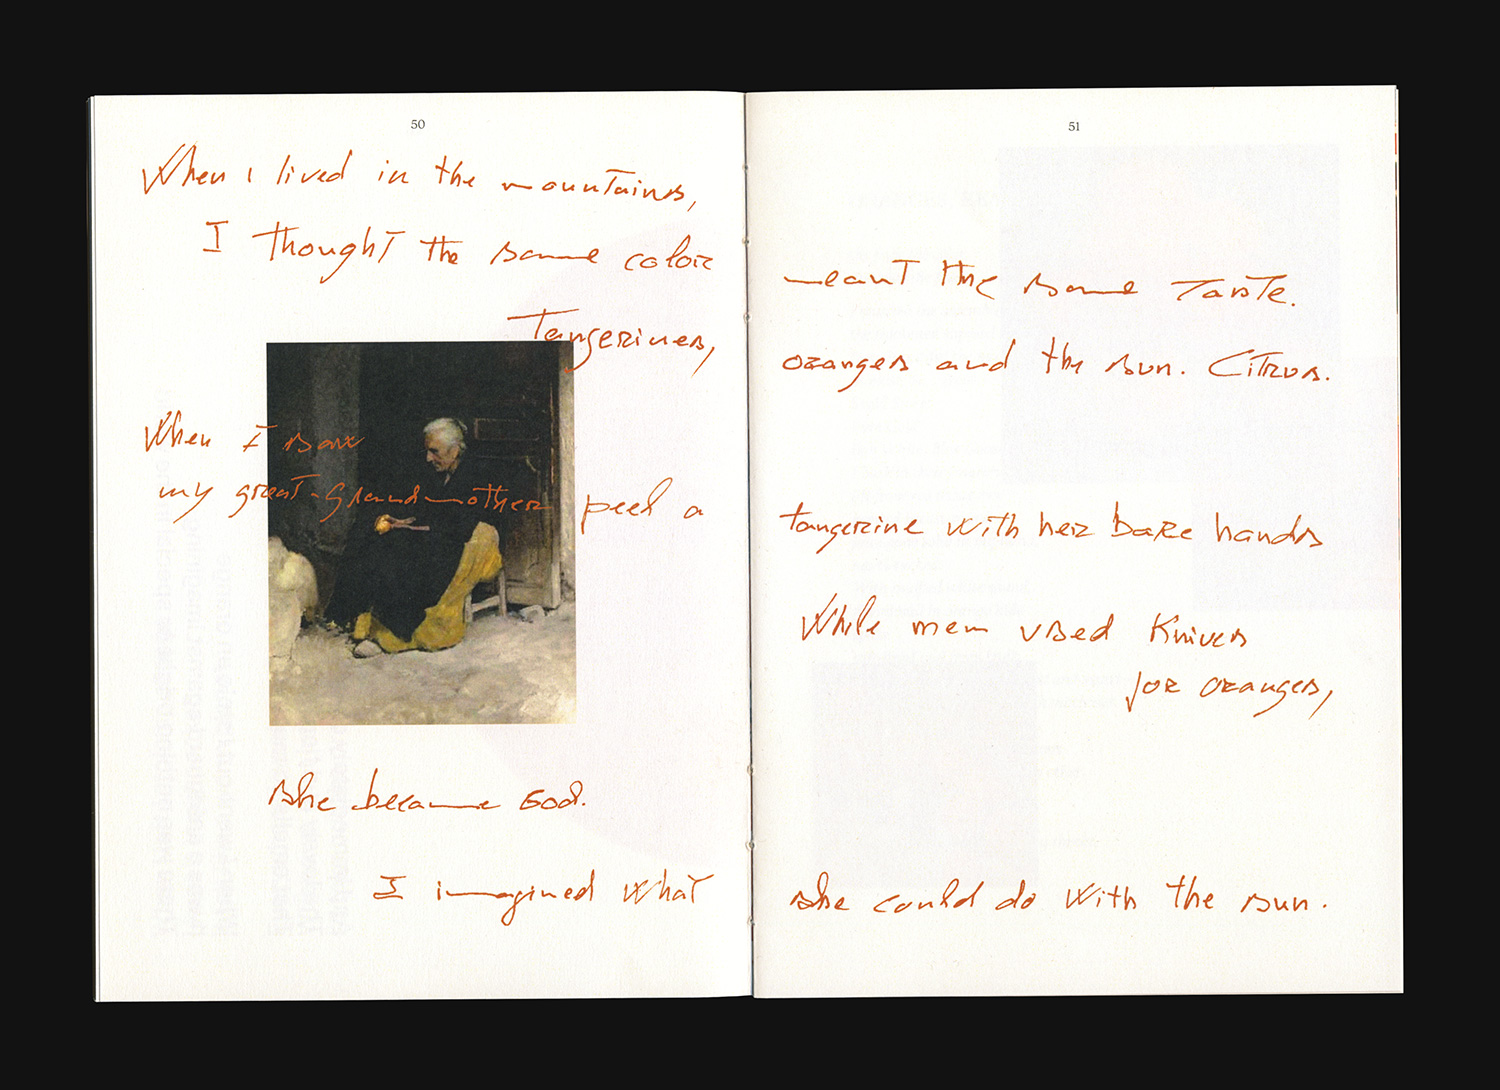 50 51
When I lived in the mountains,
I thought the same color meant the same taste.
Tangerines, oranges and the sun. Citrus.
When I saw
my great-grandmother peel a tangerine with her bare hands
While men used Knives
for oranges,
she became God.
I imagined what she could do with the sun.